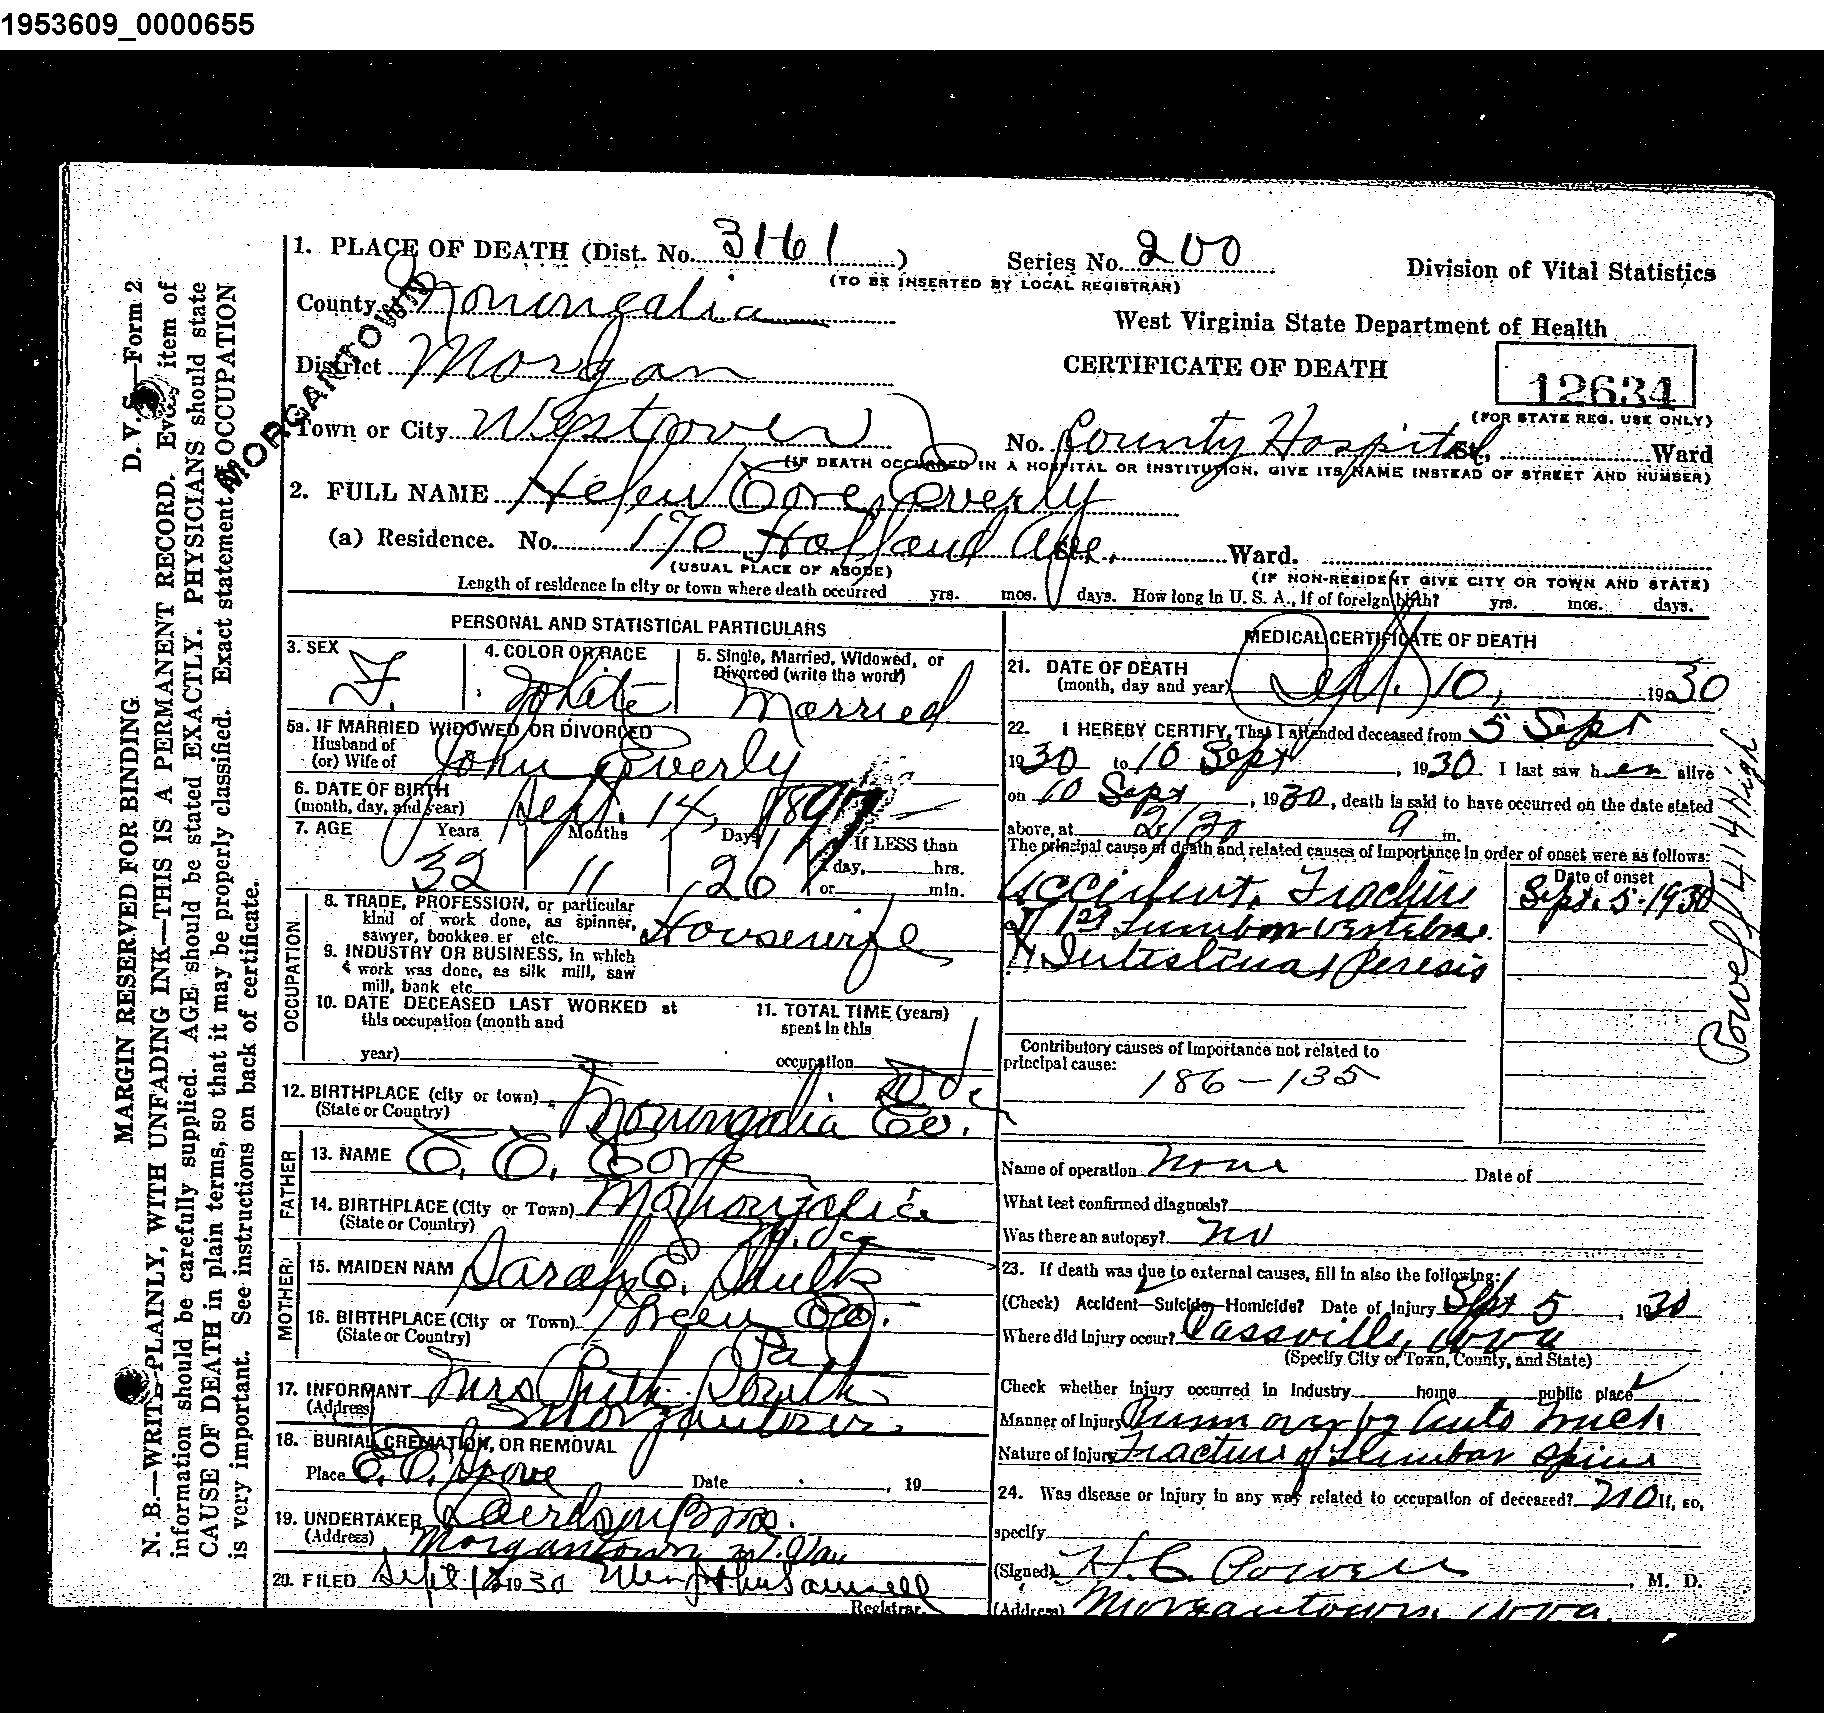 1953609_0000655
1. PLACE OF DEATH (Dist. No. 3161)
Series No. 200
Division of Vital Statistics
(TO BE INSERTED BY LOCAL REGISTRAR)
County Monongalia
West Virginia State Department of Health
District Morgan
CERTIFICATE OF DEATH
12634
(FOR STATE REG. USE ONLY)
MORGANTOWN
Town or City Westover
No. County Hospital St. Ward
(IF DEATH OCCURRED IN A HOSPITAL OR INSTITUTION, GIVE ITS NAME INSTEAD OF STREET AND NUMBER)
2. FULL NAME Helen Core Everly
(a) Residence. No. 170 Holland Ave. St. Ward.
(USUAL PLACE OF ABODE)
(IF NON-RESIDENT GIVE CITY OR TOWN AND STATE)
Length of residence in city or town where death occurred yrs. mos. days. How long in U. S. A., if of foreign birth? yrs. mos. days.
PERSONAL AND STATISTICAL PARTICULARS
3. SEX F.
4. COLOR OR RACE White
5. Single, Married, Widowed, or Divorced (write the word) Married
5a. IF MARRIED WIDOWED OR DIVORCED
Husband of
(or) Wife of John Everly
6. DATE OF BIRTH
(month, day, and year) Sept. 14, 1897
7. AGE Years Months Days If LESS than
32 11 26 day, hrs.
or min.
OCCUPATION
8. TRADE, PROFESSION, or particular
kind of work done, as spinner,
sawyer, bookkeeper etc. Housewife
9. INDUSTRY OR BUSINESS, in which
work was done, as silk mill, saw
mill, bank etc
10. DATE DECEASED LAST WORKED at
this occupation (month and
year)
11. TOTAL TIME (years)
spent in this
occupation
12. BIRTHPLACE (city or town)
(State or Country) Monongalia Co.
FATHER
13. NAME E. E. Core
14. BIRTHPLACE (City or Town) Monongalia
(State or Country)
MOTHER
15. MAIDEN NAM Sarah E.
16. BIRTHPLACE (City or Town) Green Co.
(State or Country) Pa
17. INFORMANT Mrs Ruth
(Address) Morgantown
18. BURIAL, CREMATION, OR REMOVAL
Place Grove Date , 19
19. UNDERTAKER Bros.
(Address) Morgantown W. Va
20. FILED Sept 12 1930
Registrar.
MEDICAL CERTIFICATE OF DEATH
21. DATE OF DEATH
(month, day and year) Sept. 10, 1930
22. I HEREBY CERTIFY, That I attended deceased from 5 Sept
1930 to 10 Sept, 1930. I last saw her alive
on 10 Sept, 1930, death is said to have occurred on the date stated
above, at 2/30 a m.
The principal cause of death and related causes of importance in order of onset were as follows:
Date of onset
Accident, Fracture Sept. 5-1930
of 1st Lumbar vertebrae
& Intestinal Peresis
Contributory causes of importance not related to
principal cause:
186-135
Name of operation none Date of
What test confirmed diagnosis?
Was there an autopsy? no
23. If death was due to external causes, fill in also the following:
(Check) Accident—Suicide—Homicide? Date of Injury Sept 5, 1930
Where did Injury occur? Cassville, W Va
(Specify City or Town, County, and State)
Check whether injury occurred in Industry home public place
Manner of Injury Runn over by Auto Truck
Nature of Injury Fracture of Lumbar spine
24. Was disease or injury in any way related to occupation of deceased? no If, so,
specify
(Signed) H. C. Powell, M. D.
(Address) Morgantown, W Va.
Powell 414 High
D. V. S.—Form 2
MARGIN RESERVED FOR BINDING
N. B.—WRITE PLAINLY, WITH UNFADING INK—THIS IS A PERMANENT RECORD. Every item of
information should be carefully supplied. AGE should be stated EXACTLY. PHYSICIANS should state
CAUSE OF DEATH in plain terms, so that it may be properly classified. Exact statement of OCCUPATION
is very important. See instructions on back of certificate.